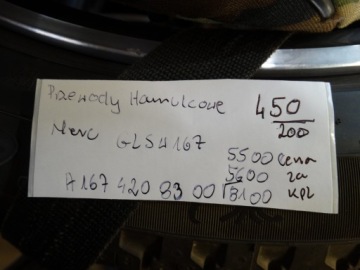 Przewody Hamulcowe 450
200
Merc GLS W167
5500 cena
5600 za
A 167 420 83 00 / 8100 kpl